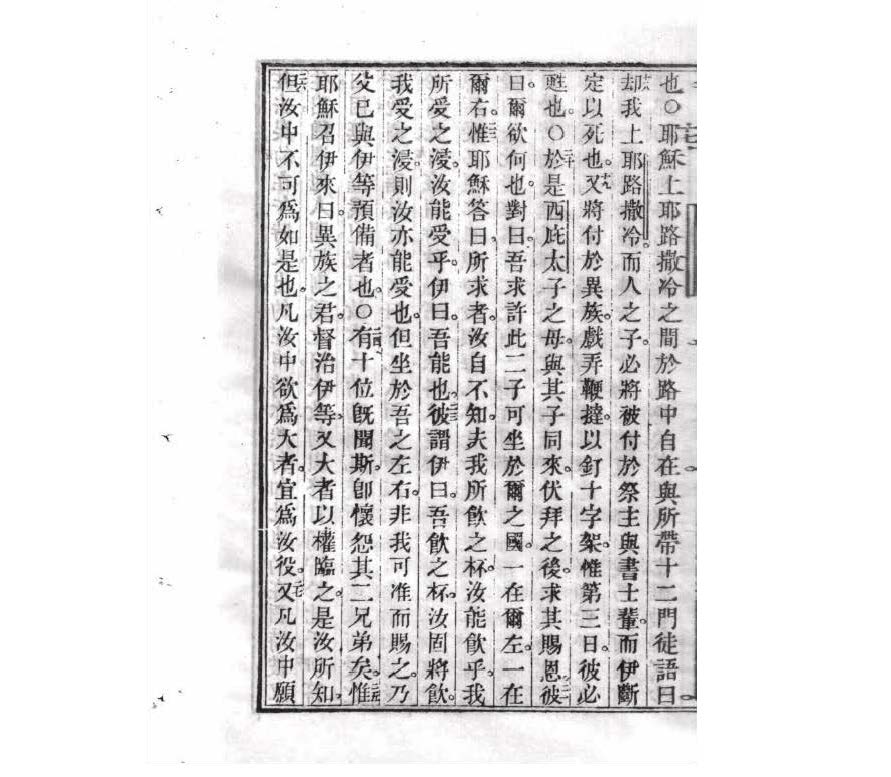 也○耶穌上耶路撒冷之間於路中自在與所帶十二門徒語曰
却我上耶路撒冷。而人之子。必將被付於祭主與書士輩。而伊斷
定以死也。又將付於異族。戲弄鞭撻。以釘十字架。惟第三日。彼必
甦也。○於是西庇太子之母。與其子同來。伏拜之後。求其賜恩。彼
曰。爾欲何也。對曰。吾求許此二子可坐於爾之國。一在爾左。一在
爾右。惟耶穌答曰。所求者。汝自不知。夫我所飲之杯。汝能飲乎。我
所愛之浸。汝能受乎。伊曰。吾能也。彼謂伊曰。吾飲之杯。汝固將飲。
我受之浸。則汝亦能受也。但坐於吾之左右。非我可准而賜之。乃
父已與伊等預備者也。○有十位既聞斯。卽懷怨其二兄弟矣。惟
耶穌召伊來曰。異族之君。督治伊等。又大者以權臨之。是汝所知。
但汝中不可爲如是也。凡汝中欲爲大者。宜爲汝役。又凡汝中願